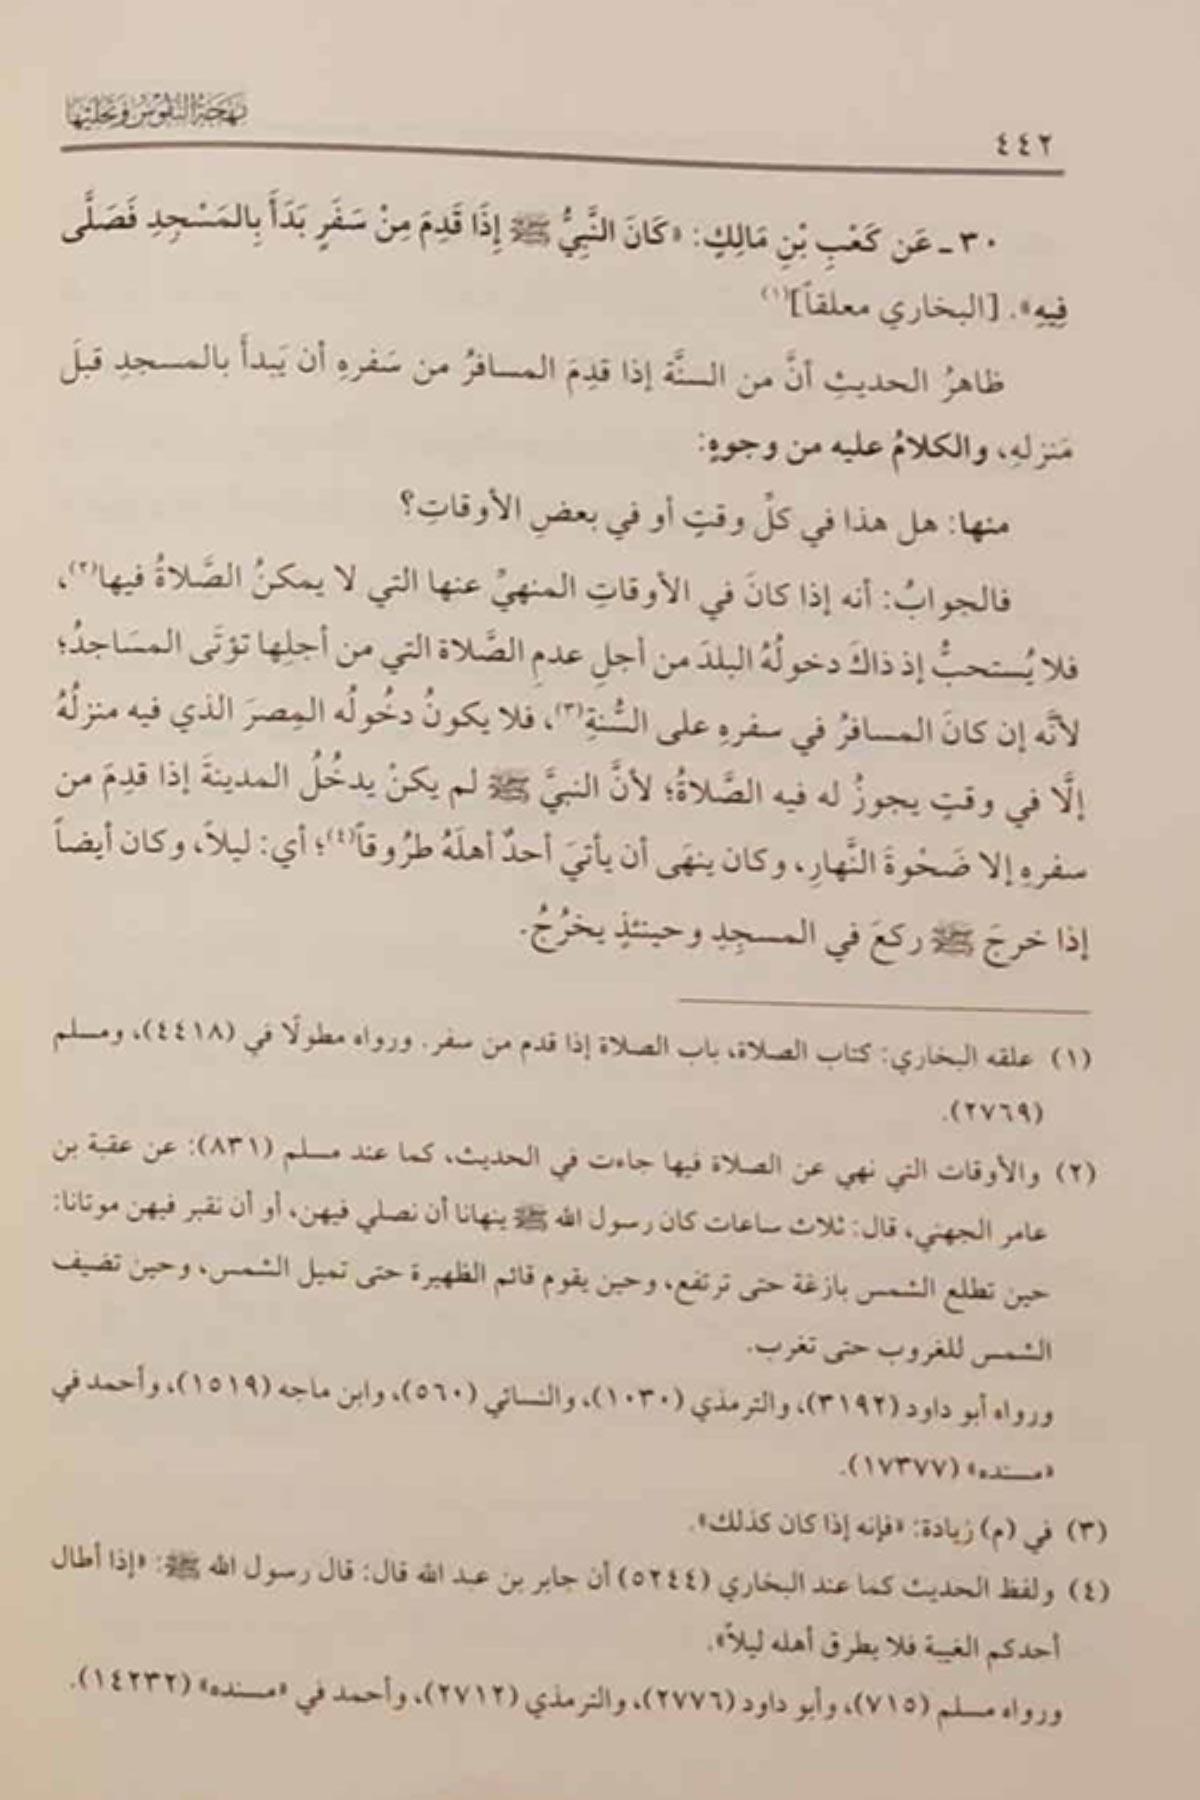 بهجة النفوس وتحليتها
٤٤٢
٣٠ ـ عَن كَعْبِ بْنِ مَالِكٍ: «كَانَ النَّبِيُّ ﷺ إِذَا قَدِمَ مِنْ سَفَرٍ بَدَأَ بِالمَسْجِدِ فَصَلَّى
فِيهِ». [البخاري معلقاً](١)
ظاهرُ الحديثِ أنَّ من السنَّة إذا قدِمَ المسافرُ من سَفرهِ أن يَبدأَ بالمسجدِ قبلَ
مَنزلهِ، والكلامُ عليه من وجوهٍ:
منها: هل هذا في كلِّ وقتٍ أو في بعضِ الأوقاتِ؟
فالجوابُ: أنه إذا كانَ في الأوقاتِ المنهيِّ عنها التي لا يمكنُ الصَّلاةُ فيها(٢)،
فلا يُستحبُّ إذ ذاكَ دخولُهُ البلدَ من أجلِ عدمِ الصَّلاة التي من أجلِها تؤتَى المسَاجدُ؛
لأنَّه إن كانَ المسافرُ في سفرهِ على السُّنةِ(٣)، فلا يكونُ دخُولُه المِصرَ الذي فيه منزلُهُ
إلَّا في وقتٍ يجوزُ له فيه الصَّلاةُ؛ لأنَّ النبيَّ ﷺ لم يكنْ يدخُلُ المدينةَ إذا قدِمَ من
سفرهِ إلا ضَحْوةَ النَّهارِ، وكان ينهَى أن يأتيَ أحدٌ أهلَهُ طرُوقاً(٤)؛ أي: ليلاً، وكان أيضاً
إذا خرجَ ﷺ ركعَ في المسجِدِ وحينئذٍ يخرُجُ.
(١) علقه البخاري: كتاب الصلاة، باب الصلاة إذا قدم من سفر. ورواه مطولًا في (٤٤١٨)، ومسلم
(٢٧٦٩).
(٢) والأوقات التي نهي عن الصلاة فيها جاءت في الحديث، كما عند مسلم (٨٣١): عن عقبة بن
عامر الجهني، قال: ثلاث ساعات كان رسول الله ﷺ ينهانا أن نصلي فيهن، أو أن نقبر فيهن موتانا:
حين تطلع الشمس بازغة حتى ترتفع، وحين يقوم قائم الظهيرة حتى تميل الشمس، وحين تضيف
الشمس للغروب حتى تغرب.
ورواه أبو داود (٣١٩٢)، والترمذي (١٠٣٠)، والنسائي (٥٦٠)، وابن ماجه (١٥١٩)، وأحمد في
«مسنده» (١٧٣٧٧).
(٣) في (م) زيادة: «فإنه إذا كان كذلك».
(٤) ولفظ الحديث كما عند البخاري (٥٢٤٤) أن جابر بن عبد الله قال: قال رسول الله ﷺ: «إذا أطال
أحدكم الغيبة فلا يطرق أهله ليلاً».
ورواه مسلم (٧١٥)، وأبو داود (٢٧٧٦)، والترمذي (٢٧١٢)، وأحمد في «مسنده» (١٤٢٣٢).